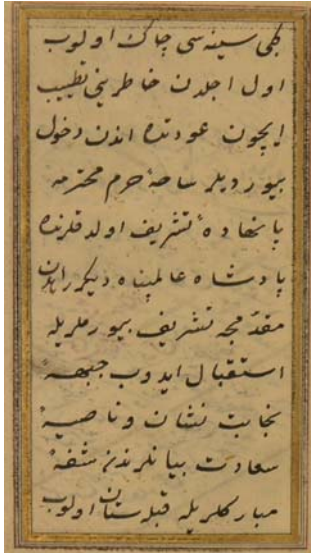 كبی سینه سی چاك اولوب
اول اجلدن خاطرینی تطییب
ایچون عودتده اذن دخول
بیوردیلر ساحهٔ حرم محترمه
پانهادهٔ تشریف اولدقلرنده
پادشاه عالمپناه دیكر راهدن
مقدّمجه تشریف بیورملریله
استقبال ایدوب جبههٔ
نجابت نشان وناصیهٔ
سعادت بیانلرندن شفهٔ
مباركلریله قبله ستان اولوب